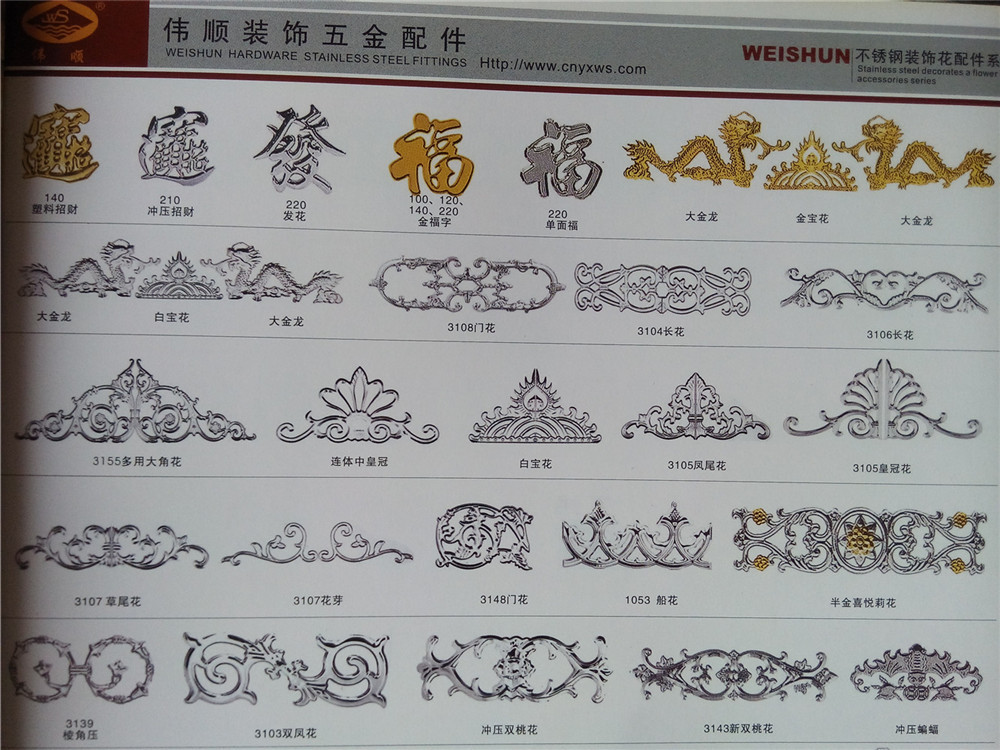 WS
®
伟 顺
伟顺装饰五金配件
WEISHUN HARDWARE STAINLESS STEEL FITTINGS Http://www.cnyxws.com
WEISHUN 不锈钢装饰花配件系
Stainless steel decorates a flower
accessories series
140
塑料招财
210
冲压招财
220
发花
100、120、
140、220
金福字
220
单面福
大金龙
金宝花
大金龙
大金龙
白宝花
大金龙
3108门花
3104长花
3106长花
3155多用大角花
连体中皇冠
白宝花
3105凤尾花
3105皇冠花
3107 草尾花
3107花芽
3148门花
1053 船花
半金喜悦莉花
3139
棱角压
3103双凤花
冲压双桃花
3143新双桃花
冲压蝙蝠